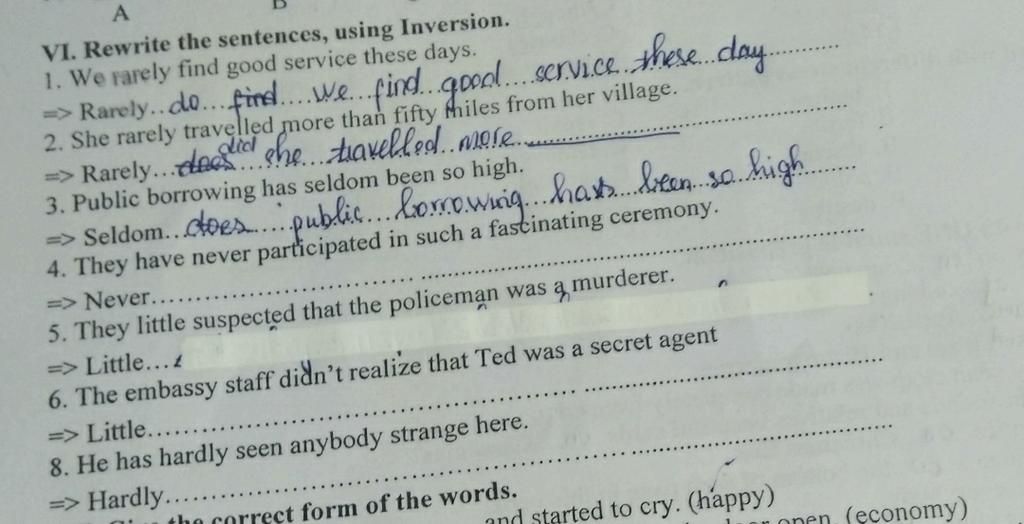 A B
VI. Rewrite the sentences, using Inversion.
1. We rarely find good service these days.
=> Rarely.. do ... find .... we ... find .. good .... service .. these .. day ...........
2. She rarely travelled more than fifty miles from her village.
did
=> Rarely... does ... she ... travelled .. more ..............................
3. Public borrowing has seldom been so high.
=> Seldom... does ..... public ... borrowing ... has ... been ... so .. high .........
4. They have never participated in such a fascinating ceremony.
=> Never..............................................................................
5. They little suspected that the policeman was a murderer.
=> Little...
6. The embassy staff didn't realize that Ted was a secret agent
=> Little..............................................................................
8. He has hardly seen anybody strange here.
=> Hardly..............................................................................
the correct form of the words.
and started to cry. (happy)
open (economy)